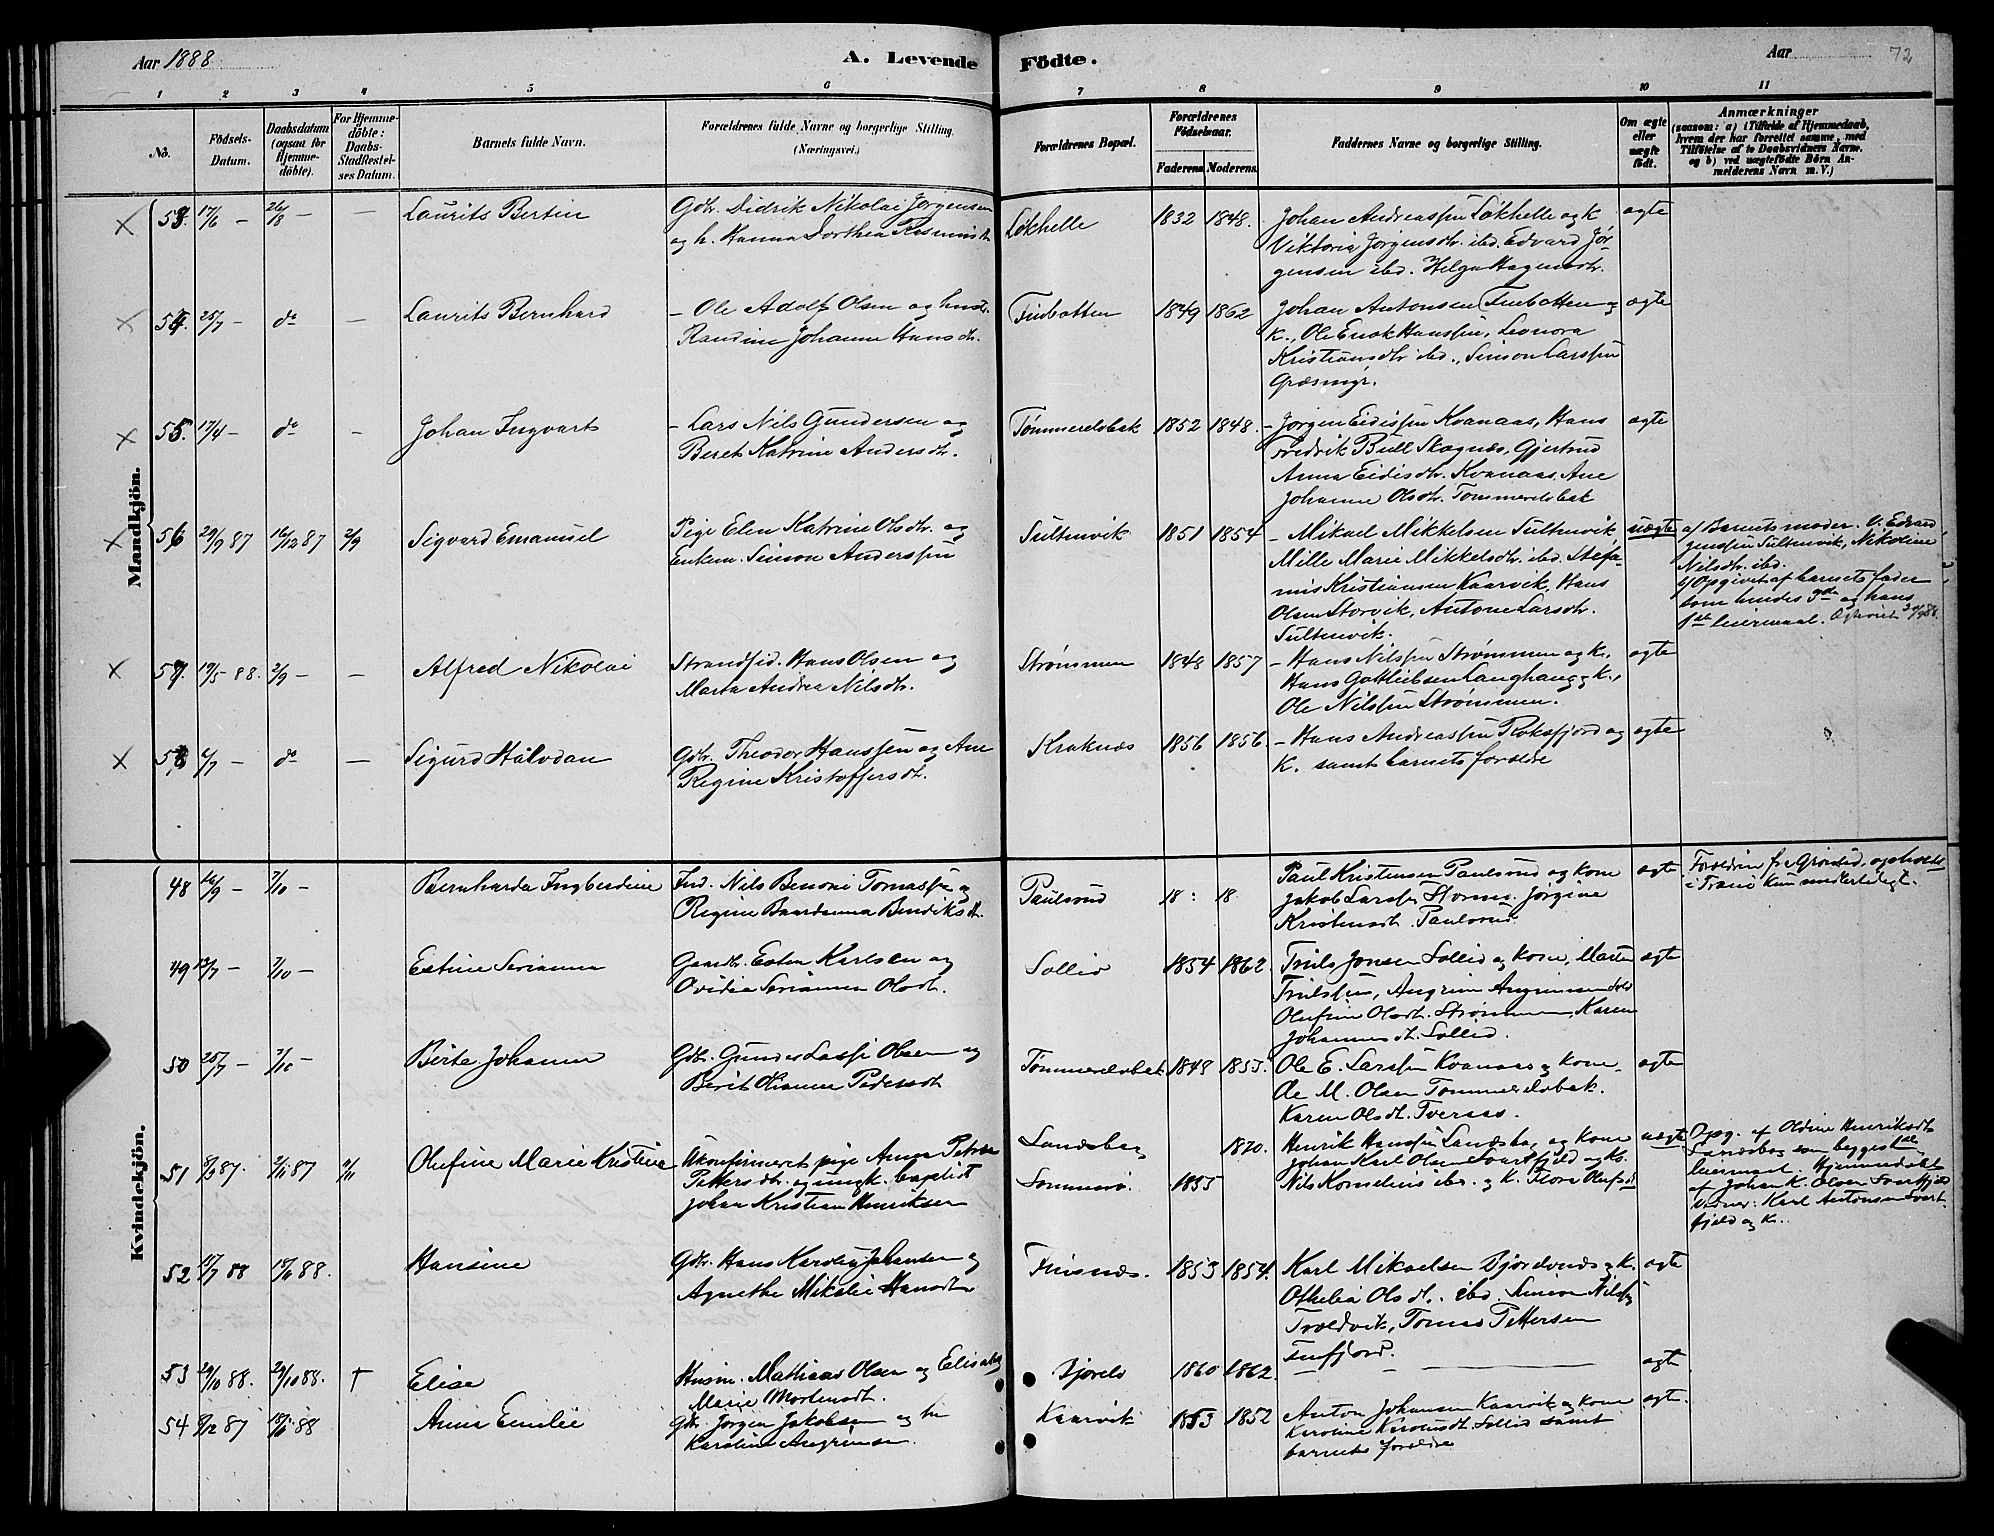 Aar 1888
A. Levende Födte.
Aar
72
1 2 3 4 5 6 7 8 9 10 11
No.
Födsels-Datum.
Daabsdatum (ogsaa for Hjemme-döbte).
For Hjemme-döbte: Daabs-Stadfæstel-ses Datum.
Barnets fulde Navn.
Forældrenes fulde Navne og borgerlige Stilling. (Næringsvei.)
Forældrenes Bopæl.
Forældrenes Födselsaar.
Faderens Moderens
Faddernes Navne og borgerlige Stilling.
Om ægte eller uægte födt.
Anmærkninger
(saasom: a) i Tilfælde af Hjemmedaab,
hvem der har forrettet samme, med
Tilföielse af to Daabsvidners Navne,
og b) ved uægtefödte Börn An-
melderens Navn m. V.)
Mandkjön.
53. 17/6 - 26/8 - - Laurits Bertin
Gdbr. Didrik Nikolai Jørgensen
og h. Hanna Dorthea
Løkhelle 1832 1848.
Johan Andreassen Løkhelle og k
Viktoria Jørgensdtr. ibd. Edvard Jør-
gensen ibd. Helga Hagensdtr.
ægte
54. 25/7 - do - Laurits Bernhard
- Ole Adolf Olsen og hust.
Randine Johanne Hansdtr.
Finbotten 1849 1862
Johan Antonsen Finbotten og
k., Ole Enok Hanssen, Leonora
Kristiansdtr ibd., Simon Larssen
Græsmyr.
ægte
55. 17/4 - do - Johan Ingvart
- Lars Nils Gundersen og
Beret Katrine Andersdtr.
Tømmerelvbak 1852 1848.
- Jørgen Eidissen Kvanaas, Hans
Fredrik Bull Skognes, Gjertrud
Anna Eidisdtr. Kvanaas, Ane
Johanne Olsdtr. Tømmerelvbak
ægte
56 29/9 87 16/12 87 2/9 Sigvard Emanuel
Pige Elen Katrine Olsdtr. og
Enkem. Simon Anderssen
Sultenvik 1851 1854
- Mikael Mikkelsen Sultenvik
Mille Marie Mikkelsdtr. ibd. Stefa-
nus Kristiansen Kaarvik, Hans
Olsen Storvik, Antone Larsdtr.
Sultenvik.
uægte
af Barnets moder. V: Edvard
Jenssen Sultenvik, Nikoline
Nilsdtr. ibd.
b) Opgivet af barnets fader
som hendes 3die og hans
1ste leiermaal.
57. 19/5 - 88. 2/9 - - Alfred Nikolai
Strandsid. Hans Olsen og
Marta Andrea Nilsdtr.
Strømmen 1848 1857
- Hans Nilssen Strømmen og k.,
Hans Gottliebsen Langhaug og k.,
Ole Nilssen Strømmen.
ægte
58 4/7 - do - Sigurd Halvdan
Gdbr. Theodor Hanssen og Ane
Regine Kristoffersdtr.
Kraknæs 1856 1856.
- Hans Andreassen Roksfjord og
K. samt barnets forældre
ægte
Kvindekjön.
48 16/9 - 7/10 - Bernharda Ingberdine
Ind. Nils Benoni Tomassen og
Regine Baardanna Bendiksdt.
Paulsrud 18 : 18
Paul Kristensen Paulsrud og kone
Jakob Larssen Jørgine
Kristensdt. Paulsrud
ægte
Forældrene fra opholdt
i Tranø kun midlertidigt.
49 13/7 - 7/10 - Estine Serianna
Gaardbr. Esten Karlsen og
Ovidia Serianna Olsdt.
Sollid 1854 1862.
Truls Jonsen Sollid og kone, Marten
Trulssen, Angrim Angrimsen Sold
Olufine Olsdt. Strømmen, Karen
Johannesdt. Sollid.
ægte
50 25/7 - 7/10 - Birte Johanna
Gdbr. Gunder Olsen og
Berit Pedersdt
Tømmerelvbak 1848 1853.
Ole E. Larssen Kvanaas og kone
Ole M. Olsen Tømmerelvbak.
Karen Olsdt. Tveraas.
ægte
51 87. 2/11 87 Olufine Marie Kristina
Ukonfirmeret pige Anna Petrea
Pettersdtr. og ungk. baptist
Johan Kristian Henriksen
Sandsbag 1870.
Sommerø. 1855
Henrik Hanssen Sandsbag og kone
Johan Karl Olsen Svartfjeld og k.
Nils Kornelius ibd. og k. Flora Olufsd
uægte
Opg. af Oldine Henriksdt
Sandsbag som begges 1ste
leiermaal. Hjemmedøbt
af Johan K. Olsen Svartfjeld
Vidner: Karl Antonsen Svart-
fjeld og k.
52 17/7 88 88. Hansine
Gdbr. Hans Johansen og
Agnethe Mikalie Hansdt
Finsnæs. 1853 1854.
Karl Mikaelsen og k.
Othelia Olsdt. ibd. Simon Nilssen
Troldvik, Tomas Pettersen
Finfjord.
ægte
53 29/10 88. 29/10 88. † Elise
Husm. Mathias Olsen og Elisabeg
Marie Mortensdt.
Bjorelv 1860 1862
ægte
54 /12 87 88 Anna Emilie
Gdbr. Jørgen Jakobsen og hu
Karoline Angrimsen.
Kaarvik 1853 1852
Anton Johansen Kaarvik og kone
Karoline Sollid samt
barnets forældre
ægte.